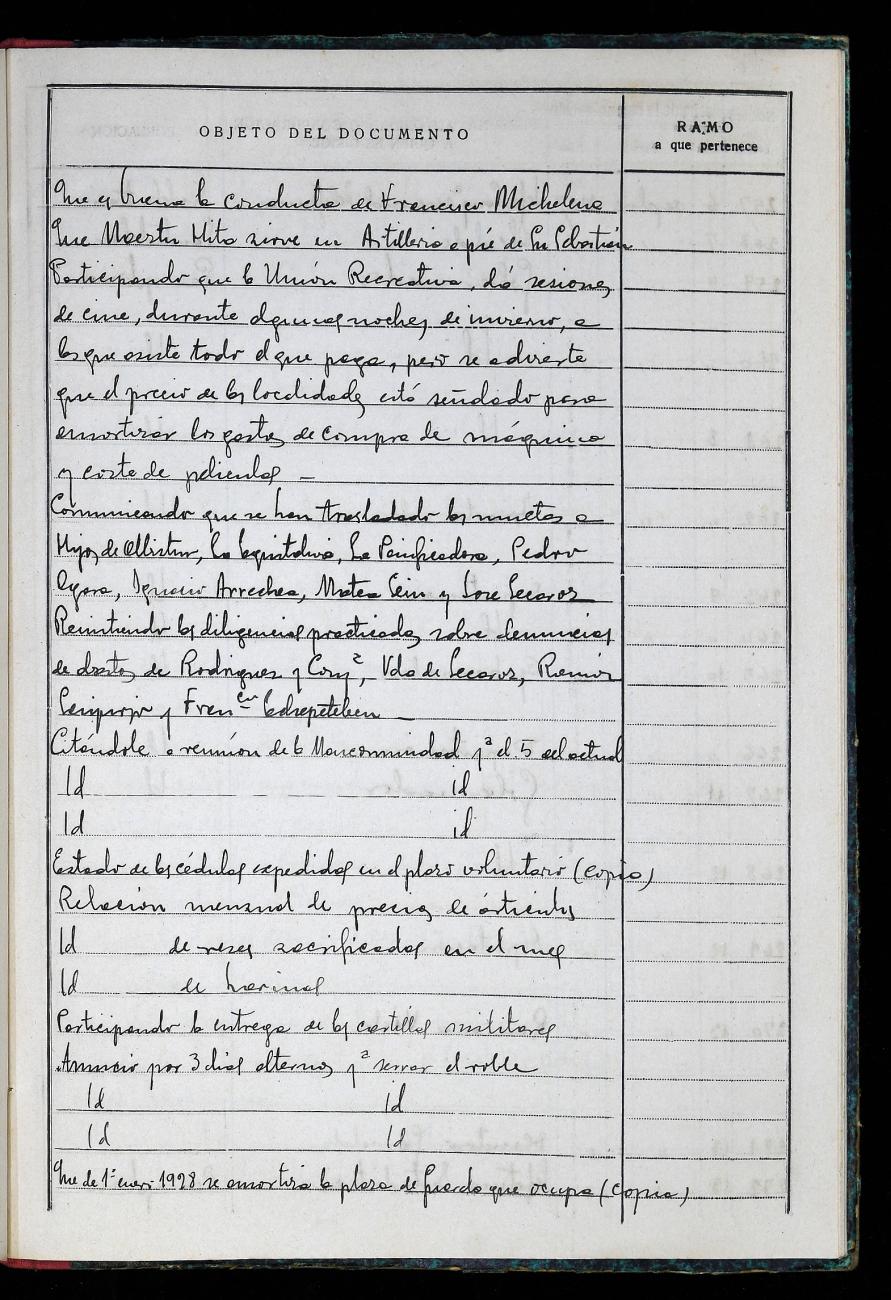 OBJETO DEL DOCUMENTO
RAMO
a que pertenece
Que es buena la conducta de Francisco Michelena
Que Maestu Mita sirve en Artilleria a pié de Sn Sebastián
Participando que la Unión Recreativa, dá sesiones
de cine, durante algunas noches de invierno, a
las que asiste todo el que paga, pero se advierte
que el precio de las localidades está señalado para
amortizar los gastos de compra de máquina
y coste de peliculas —
Comunicando que se han trasladado las multas a
Hijos de Ollistur, La Equitativa, La Panificadora, Pedro
Ignacio Arrechea, Mateo Sein y Jose Lecaroz
Remitiendo las diligencias practicadas sobre denuncias
de de Rodriguez y Comp², Vda de Lecaroz, Ramón
y Fran^co
Citándole a reunión de la Mancomunidad pª el 5 del actual
Id id
Id id
Estado de las cédulas expedidas en el plazo voluntario (Copia)
Relacion mensual de precios de artículos
Id de reses sacrificadas en el mes
Id de harinas
Participando la entrega de las cartillas militares
Anuncio por 3 dias alternos pª serrar el roble
Id Id
Id Id
Que de 1º enero 1928 se amortiza la plaza de Guarda que ocupa (Copia)